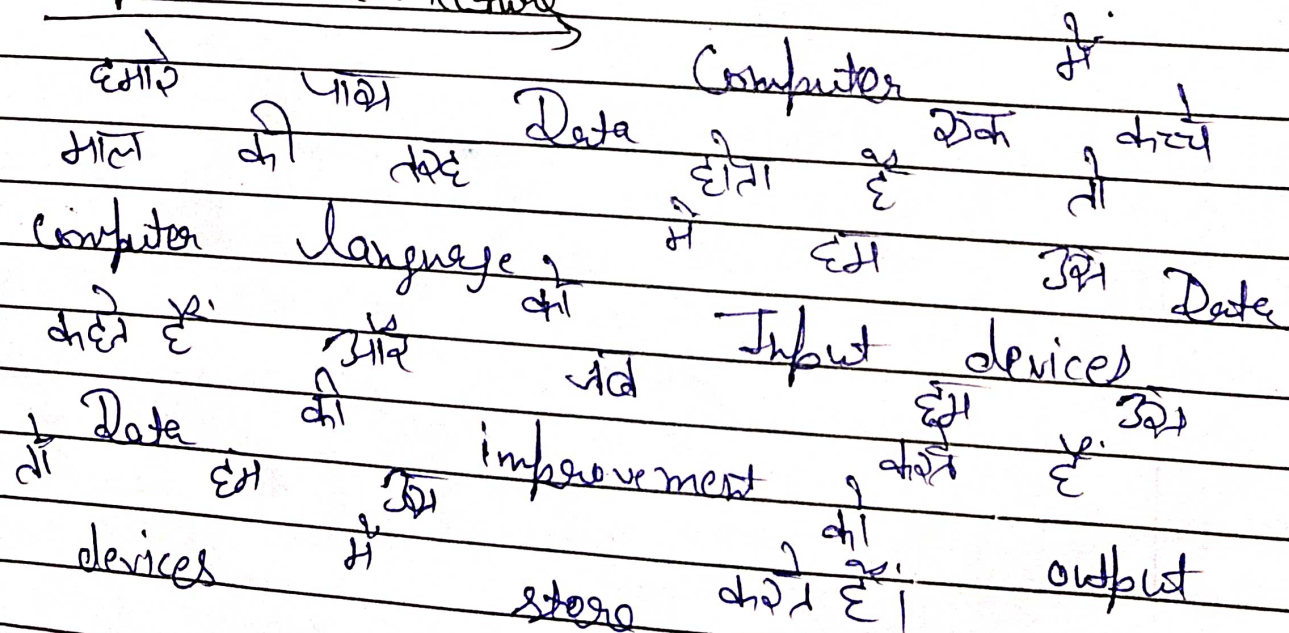 Computer में
हमारे पास Data एक कच्चे
माल की तरह होता है तो
Computer language में हम उस Data
को Input devices
कहते हैं और जब हम उस
Data की improvement करते हैं
तो हम उस को output
devices में store करते हैं।